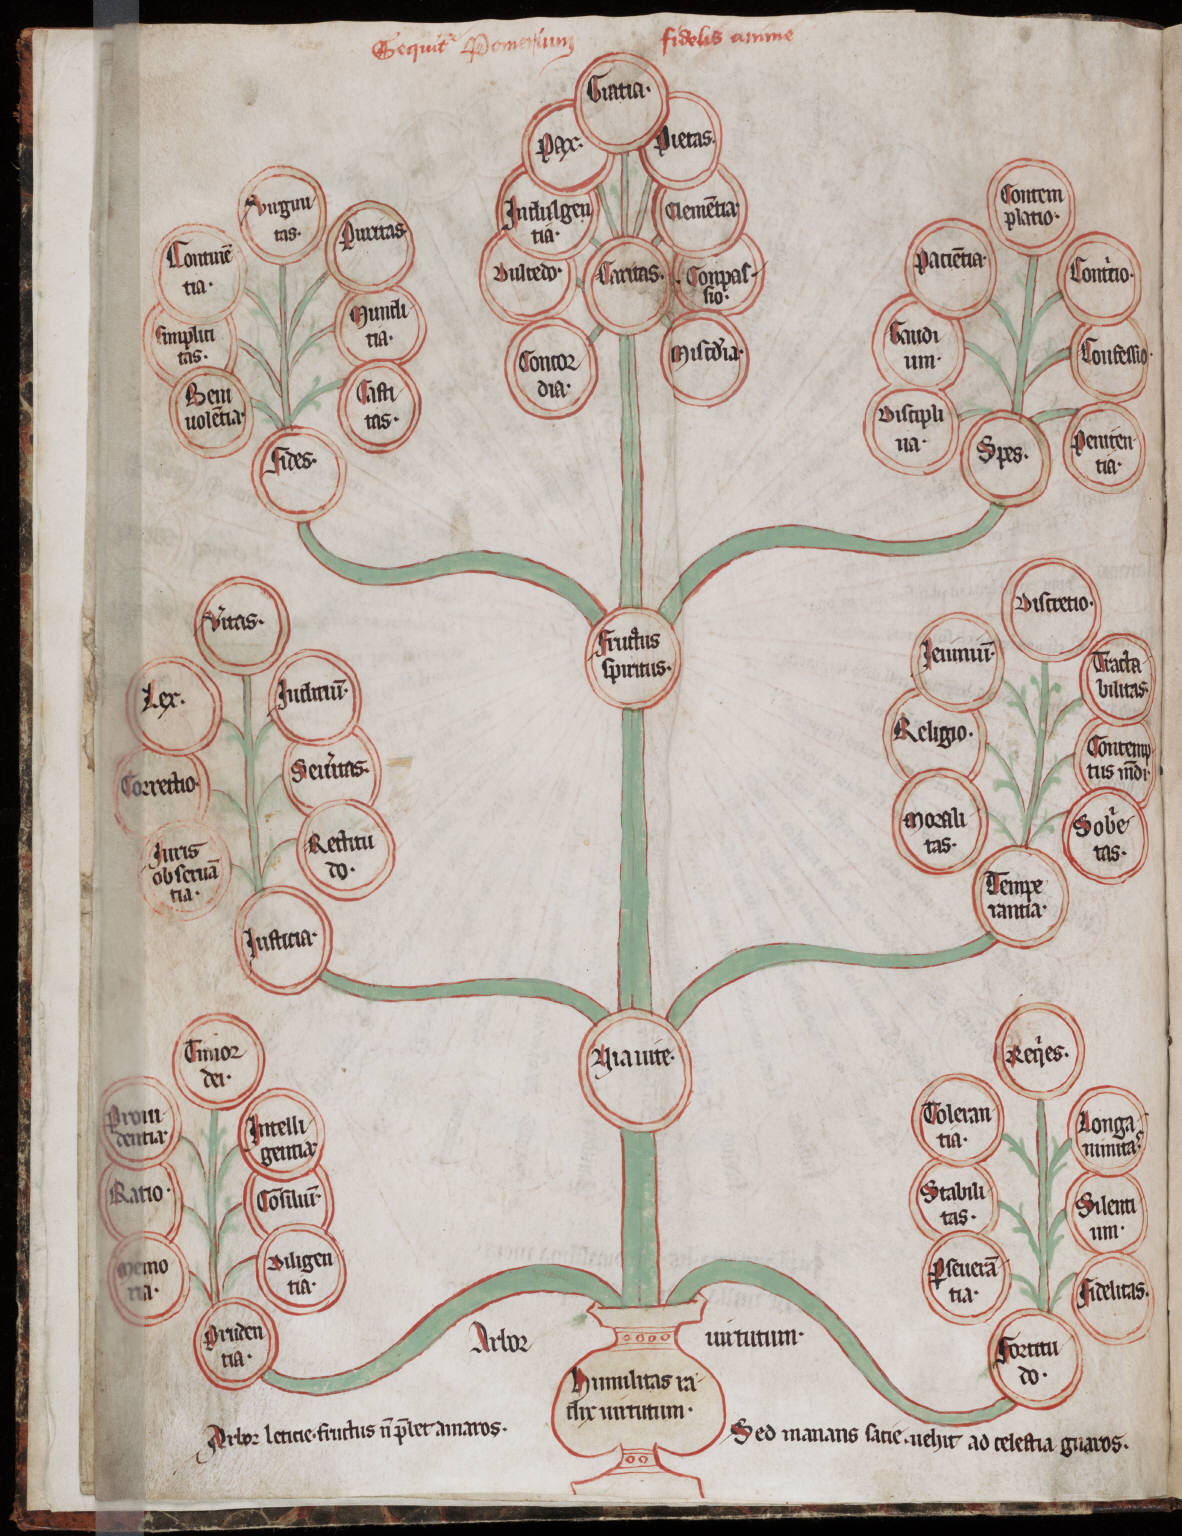 Sequit᷑ Pomerium fidelis anime
Gratia·
Pax·
Pietas·
Indulgen
tia·
Clemēcia
Dulcedo·
Caritas·
Conpas
sio·
Concor
dia·
Misc̄dia·
Virgini
tas·
Puritas
Continē
tia·
Mundi
tia·
Simplici
tas·
Beni
uolētia
Casti
tas·
Fides·
Contem
platio·
Paciētia
Cont͛icio·
Gaudi
um·
Confessio·
Discipli
na·
Peniten
tia·
Spes·
Fructus
spiritus·
V͛itas·
Lex·
Iudiciū·
Correctio·
Seu͛itas·
Iuris
obseruā
tia·
Rectitu
do·
Iusticia·
Discretio·
Ieiuniū·
Tracta
bilitas
Religio·
Contemp
tus mūdi·
Morali
tas·
Sob͛e
tas·
Tempe
rantia·
Uia uite·
Timor
dei·
Proui
dentia·
Intelli
gentia
Ratio·
Cōsiliū·
Memo
ria·
Diligen
tia·
Pruden
tia·
Req͛es·
Toleran
tia·
Longa
nimitas
Stabili
tas·
Silenti
um·
Pseuerā
tia·
Fidelitas·
Fortitu
do·
Arbor uirtutum·
Humilitas ra
dix uirtutum·
Arbor leticie·fructus nō p̄bet amaros·
Sed manans sacie·uehit ad celestia gnaros·